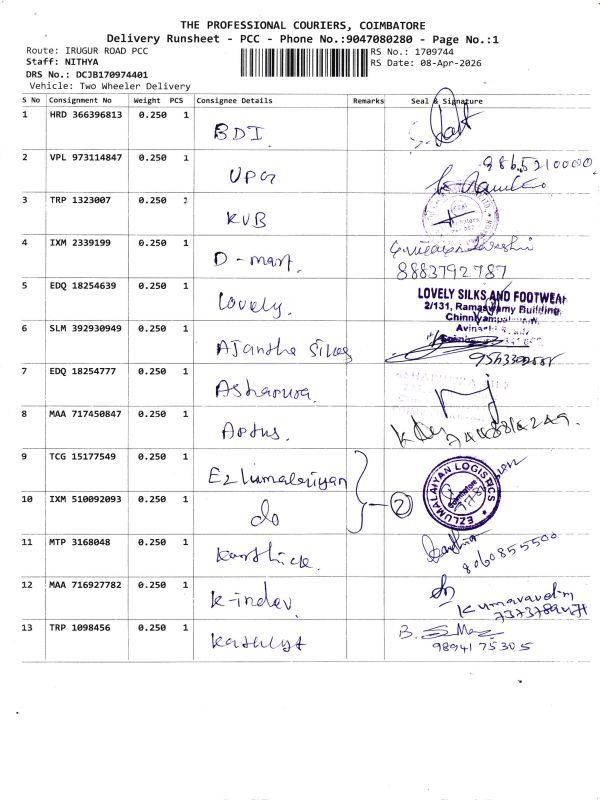 THE PROFESSIONAL COURIERS, COIMBATORE
Delivery Runsheet - PCC - Phone No.:9047080280 - Page No.:1
Route: IRUGUR ROAD PCC
RS No.: 1709744
Staff: NITHYA
RS Date: 08-Apr-2026
DRS No.: DCJB170974401
Vehicle: Two Wheeler Delivery
S No Consignment No Weight PCS Consignee Details Remarks Seal & Signature
1 HRD 366396813 0.250 1 BDI
2 VPL 973114847 0.250 1 UPG 9865210000
3 TRP 1323007 0.250 1 KVB
4 IXM 2339199 0.250 1 D-mart.
8883792787
5 EDQ 18254639 0.250 1 Lovely.
LOVELY SILKS AND FOOTWEAR
2/131, Ramaswamy Building,
6 SLM 392930949 0.250 1 Ajantha Silks
7 EDQ 18254777 0.250 1
8 MAA 717450847 0.250 1
9 TCG 15177549 0.250 1 Ezlumalaiyan
EZLUMALAIYAN LOGISTICS
Coimbatore
10 IXM 510092093 0.250 1 do 2
11 MTP 3168048 0.250 1 Karthick.
8060855500
12 MAA 716927782 0.250 1 K-indev.
13 TRP 1098456 0.250 1 B.
9894175305